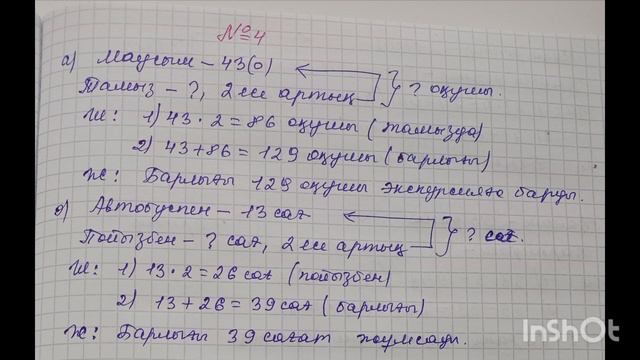 №4
а) Маусым – 43(о)
Тамыз – ?, 2 есе артық } ? оқушы.
Ш: 1) 43 · 2 = 86 оқушы (тамызда)
2) 43 + 86 = 129 оқушы (барлығы)
Ж: Барлығы 129 оқушы экскурсияға барды.
ә) Автобуспен – 13 сағ
Пойызбен – ? сағ, 2 есе артық } ? сағ.
Ш: 1) 13 · 2 = 26 сағ (пойызбен)
2) 13 + 26 = 39 сағ (барлығы)
Ж: Барлығы 39 сағат жұмсады.
InShOt